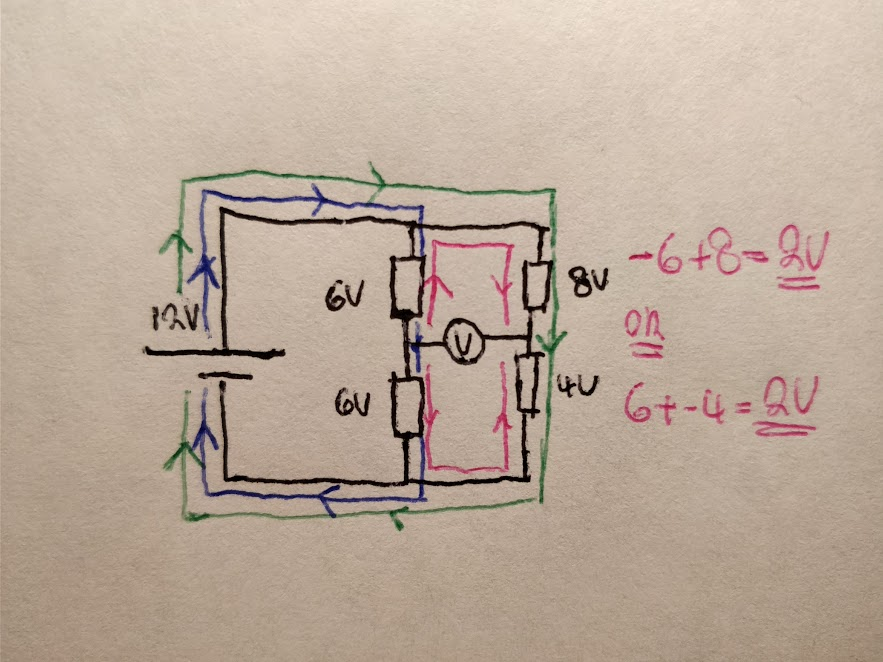 12V
6V
8V
V
6V
4V
-6+8=2V
OR
6+-4=2V